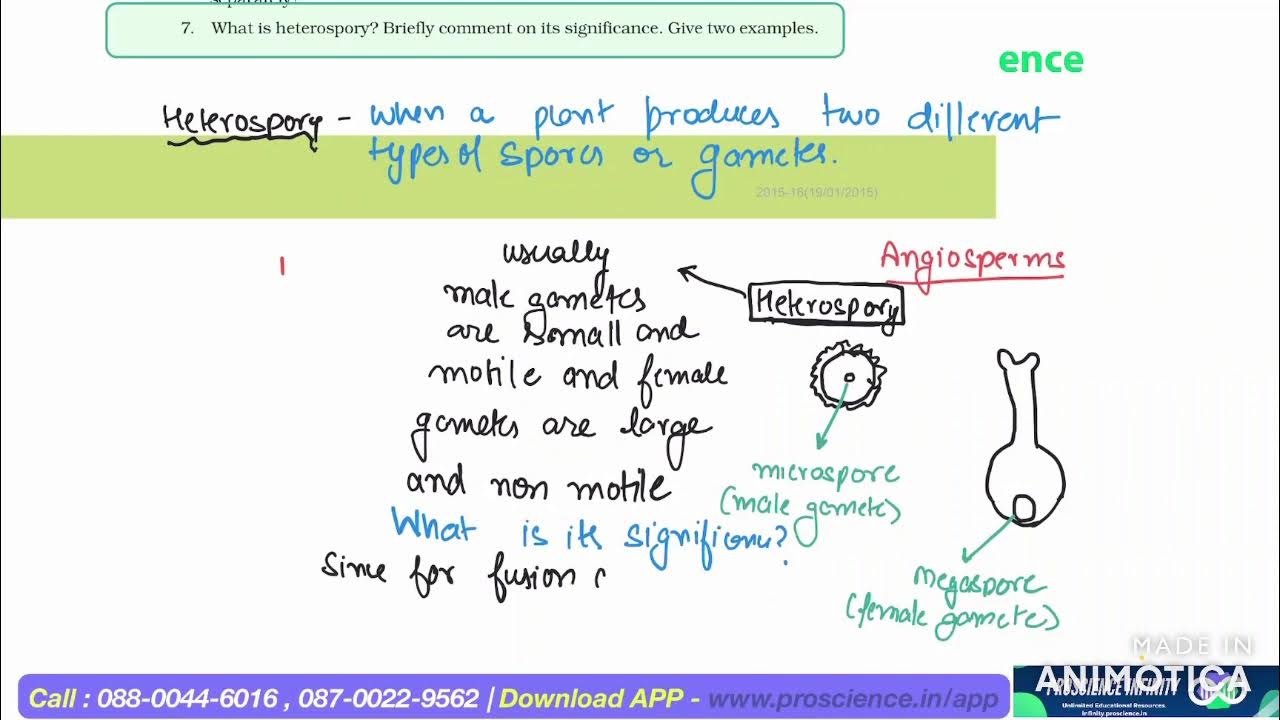 separately?
7. What is heterospory? Briefly comment on its significance. Give two examples.
ence
Heterospory - when a plant produces two different
types of spores or gametes.
2015-16(19/01/2015)
Angiosperms
Heterospory
usually
male gametes
are small and
motile and female
gametes are large
and non motile
microspore
(male gamete)
What is its significance?
Since for fusion
megaspore
(female gamete)
MADE IN
ANIMOTICA
Call : 088-0044-6016 , 087-0022-9562 | Download APP - www.proscience.in/app
PROSCIENCE INFINITY
Unlimited Educational Resources.
infinity.proscience.in